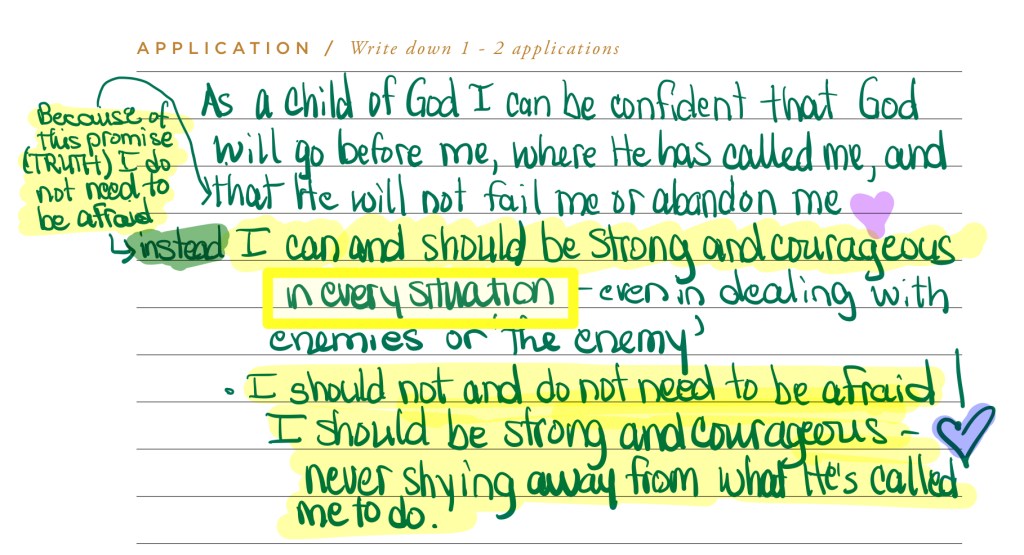 APPLICATION / Write down 1 - 2 applications
As a child of God I can be confident that God
will go before me, where He has called me, and
that He will not fail me or abandon me
Because of
this promise
(TRUTH) I do
not need to
be afraid
instead I can and should be strong and courageous
in every situation - even in dealing with
enemies or 'the enemy'
• I should not and do not need to be afraid!
I should be strong and courageous -
never shying away from what He's called
me to do.